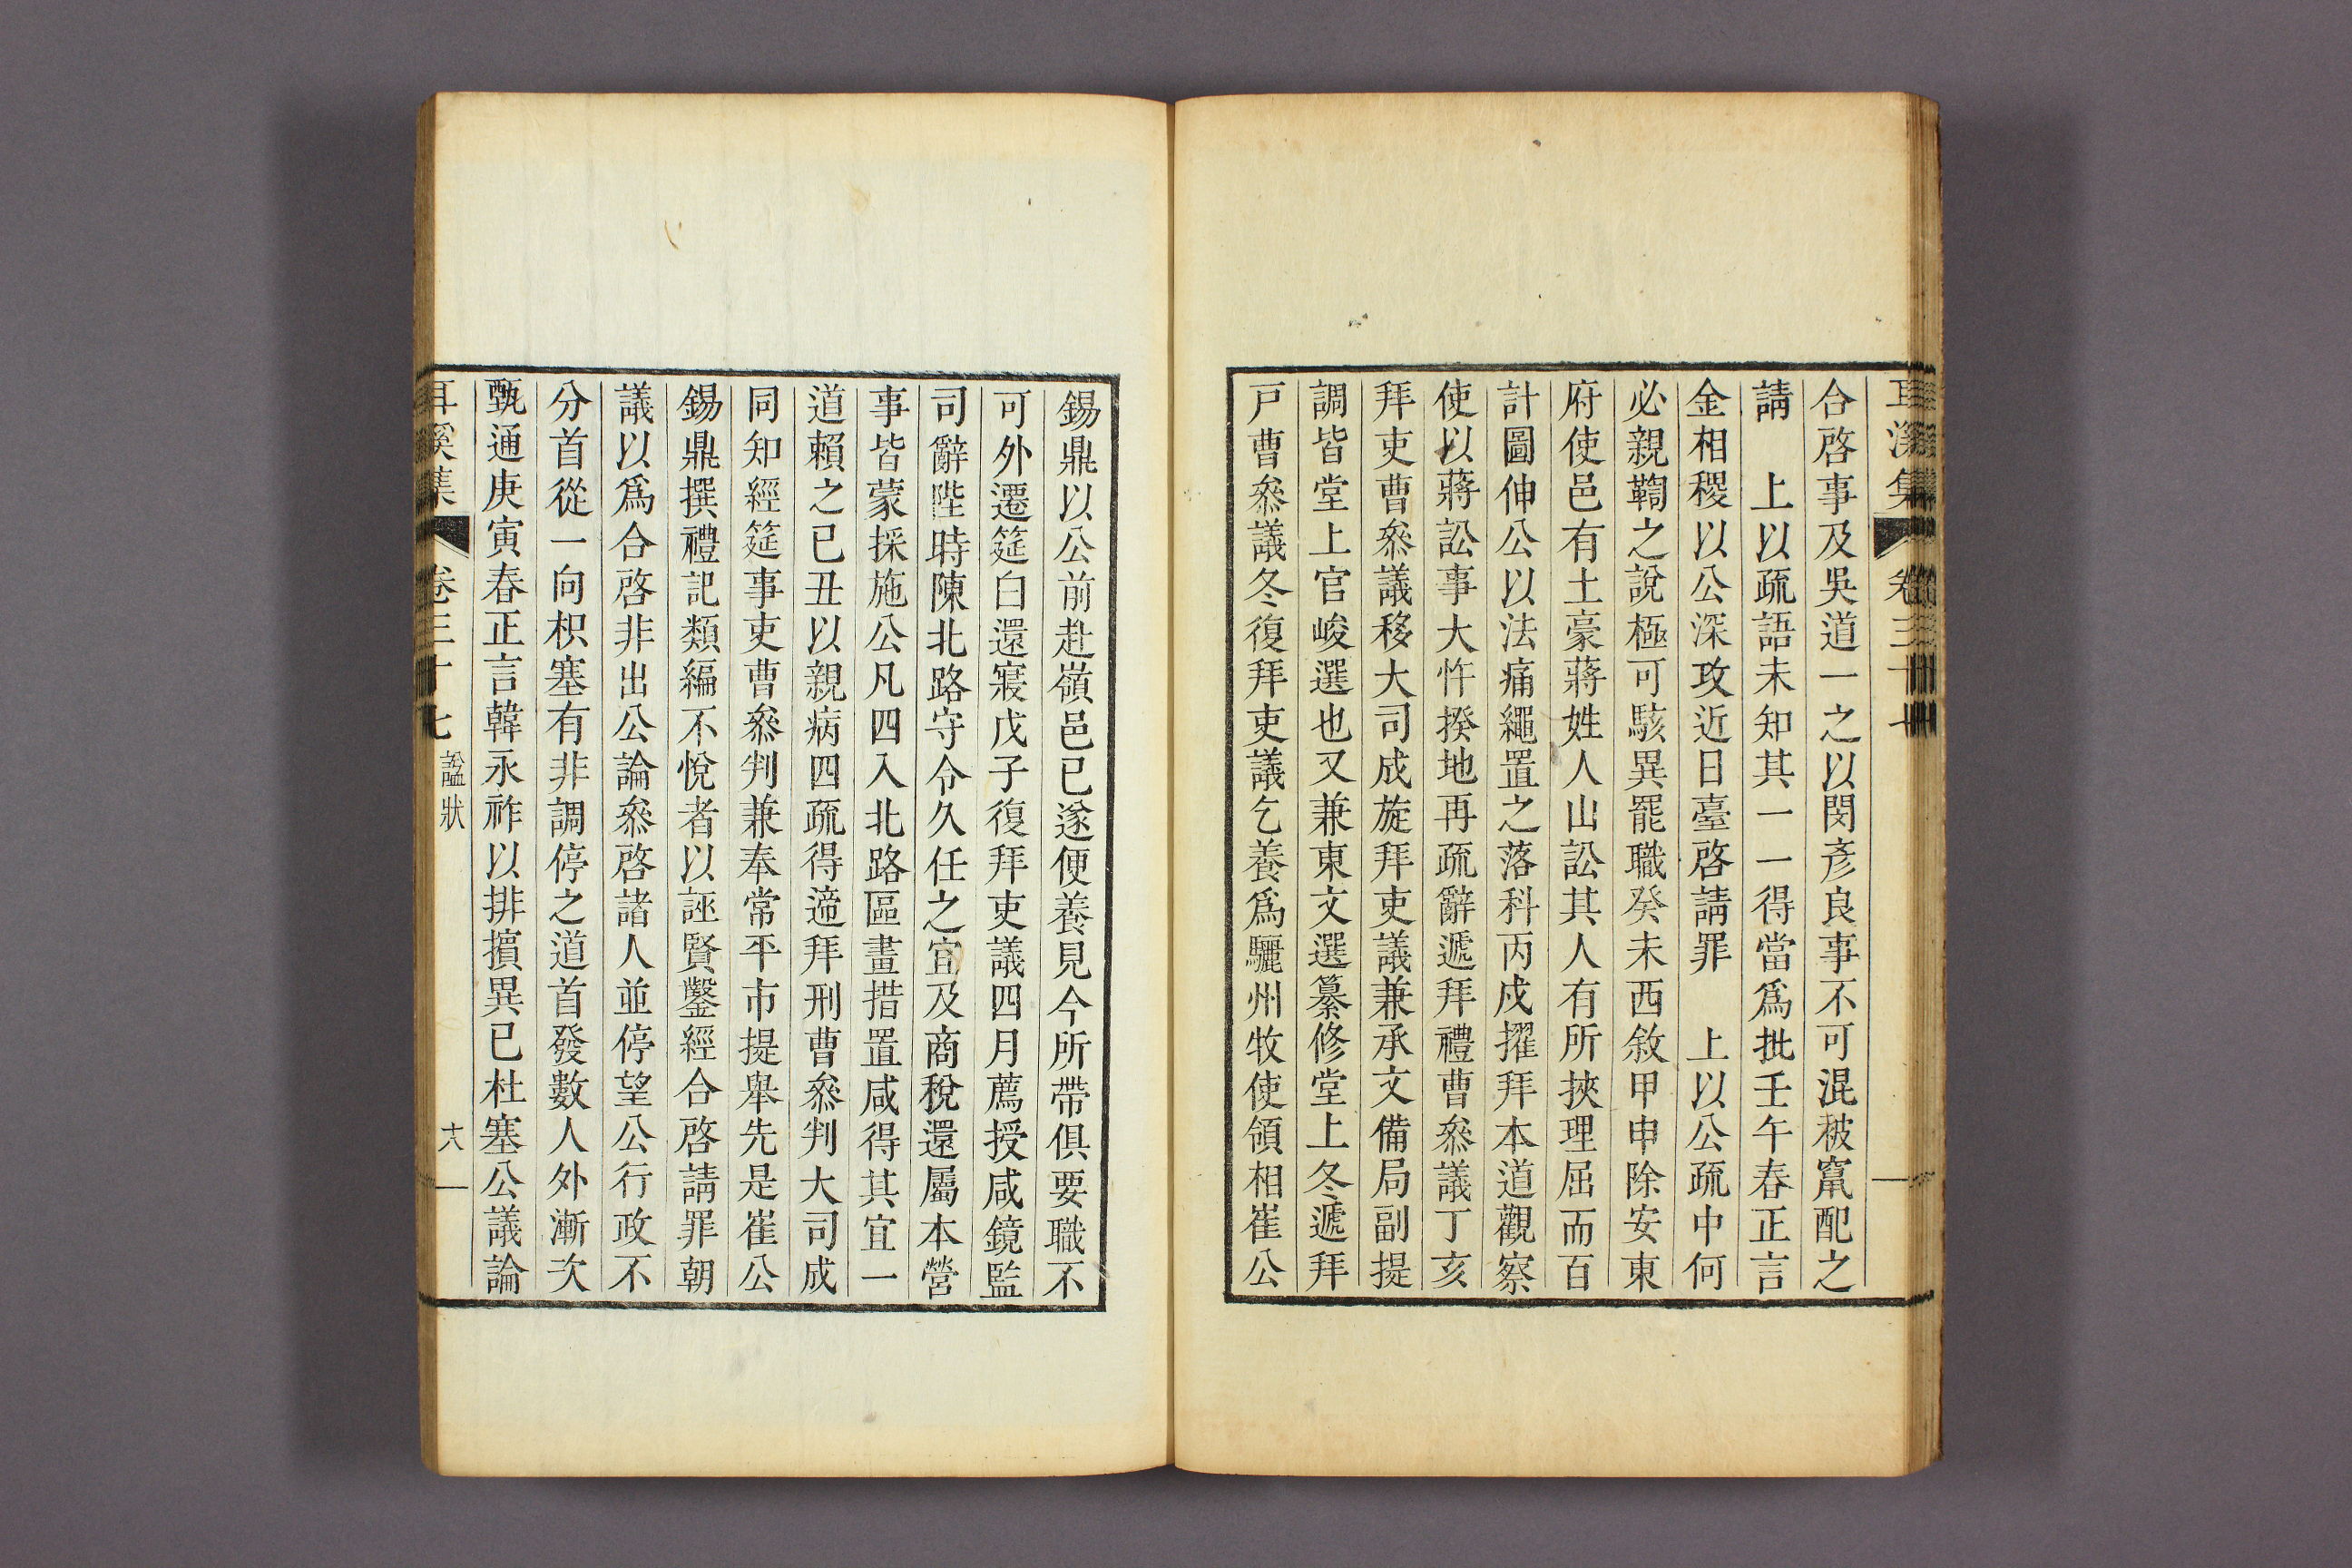 耳溪集 卷三十七
合啓事及吳道一之以閔彥良事不可混被竄配之
請 上以疏語未知其一一得當爲批壬午春正言
金相稷以公深攻近日臺啓請罪 上以公疏中何
必親鞫之說極可駭異罷職癸未西敘甲申除安東
府使邑有土豪蔣姓人山訟其人有所挾理屈而百
計圖伸公以法痛繩置之落科丙戌擢拜本道觀察
使以蔣訟事大忤揆地再疏辭遞拜禮曹叅議丁亥
拜吏曹叅議移大司成旋拜吏議兼承文備局副提
調皆堂上官峻選也又兼東文選纂修堂上冬遞拜
戸曹叅議冬復拜吏議乞養爲驪州牧使領相崔公
錫鼎以公前赴嶺邑已遂便養見今所帶俱要職不
可外遷筵白還寢戊子復拜吏議四月薦授咸鏡監
司辭陛時陳北路守令久任之宜及商稅還屬本營
事皆蒙採施公凡四入北路區畫措置咸得其宜一
道賴之已丑以親病四疏得遞拜刑曹叅判大司成
同知經筵事吏曹叅判兼奉常平市提舉先是崔公
錫鼎撰禮記類編不悅者以誣賢鑿經合啓請罪朝
議以爲合啓非出公論叅啓諸人並停望公行政不
分首從一向枳塞有非調停之道首發數人外漸次
甄通庚寅春正言韓永祚以排擯異已杜塞公議論
耳溪集 卷三十七 諡狀 十八